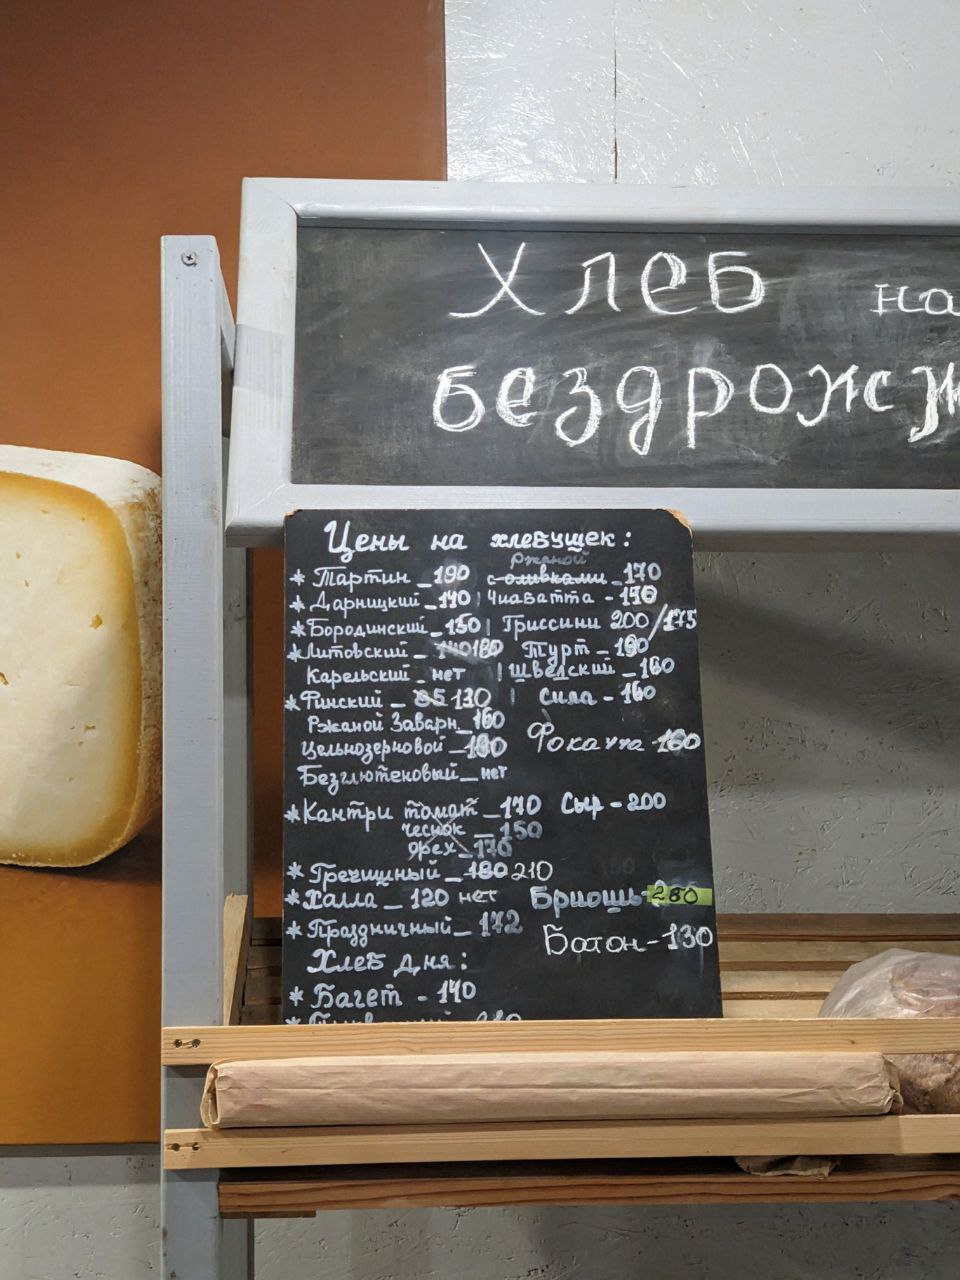 Хлеб на
бездрожж
Цены на хлебушек:
* Тартин _ 190
* Дарницкий _ 140
* Бородинский _ 150
* Литовский _ 140 180
Карельский _ нет
* Финский _ 85 130
Ржаной Заварн _ 160
Цельнозерновой _ 190
Безглютеновый _ нет
* Кантри томат _ 170
чеснок _ 150
орех _ 170
* Гречишный _ 180 210
* Халла _ 120 нет
* Праздничный _ 172
Хлеб дня:
* Багет - 140
ржаной
с оливками _ 170
Чиабатта -
Гриссини 200/175
Турт _
Шведский _ 160
Сила - 160
Фокачча - 160
Сыр - 200
Бриошь - 280
Батон - 130